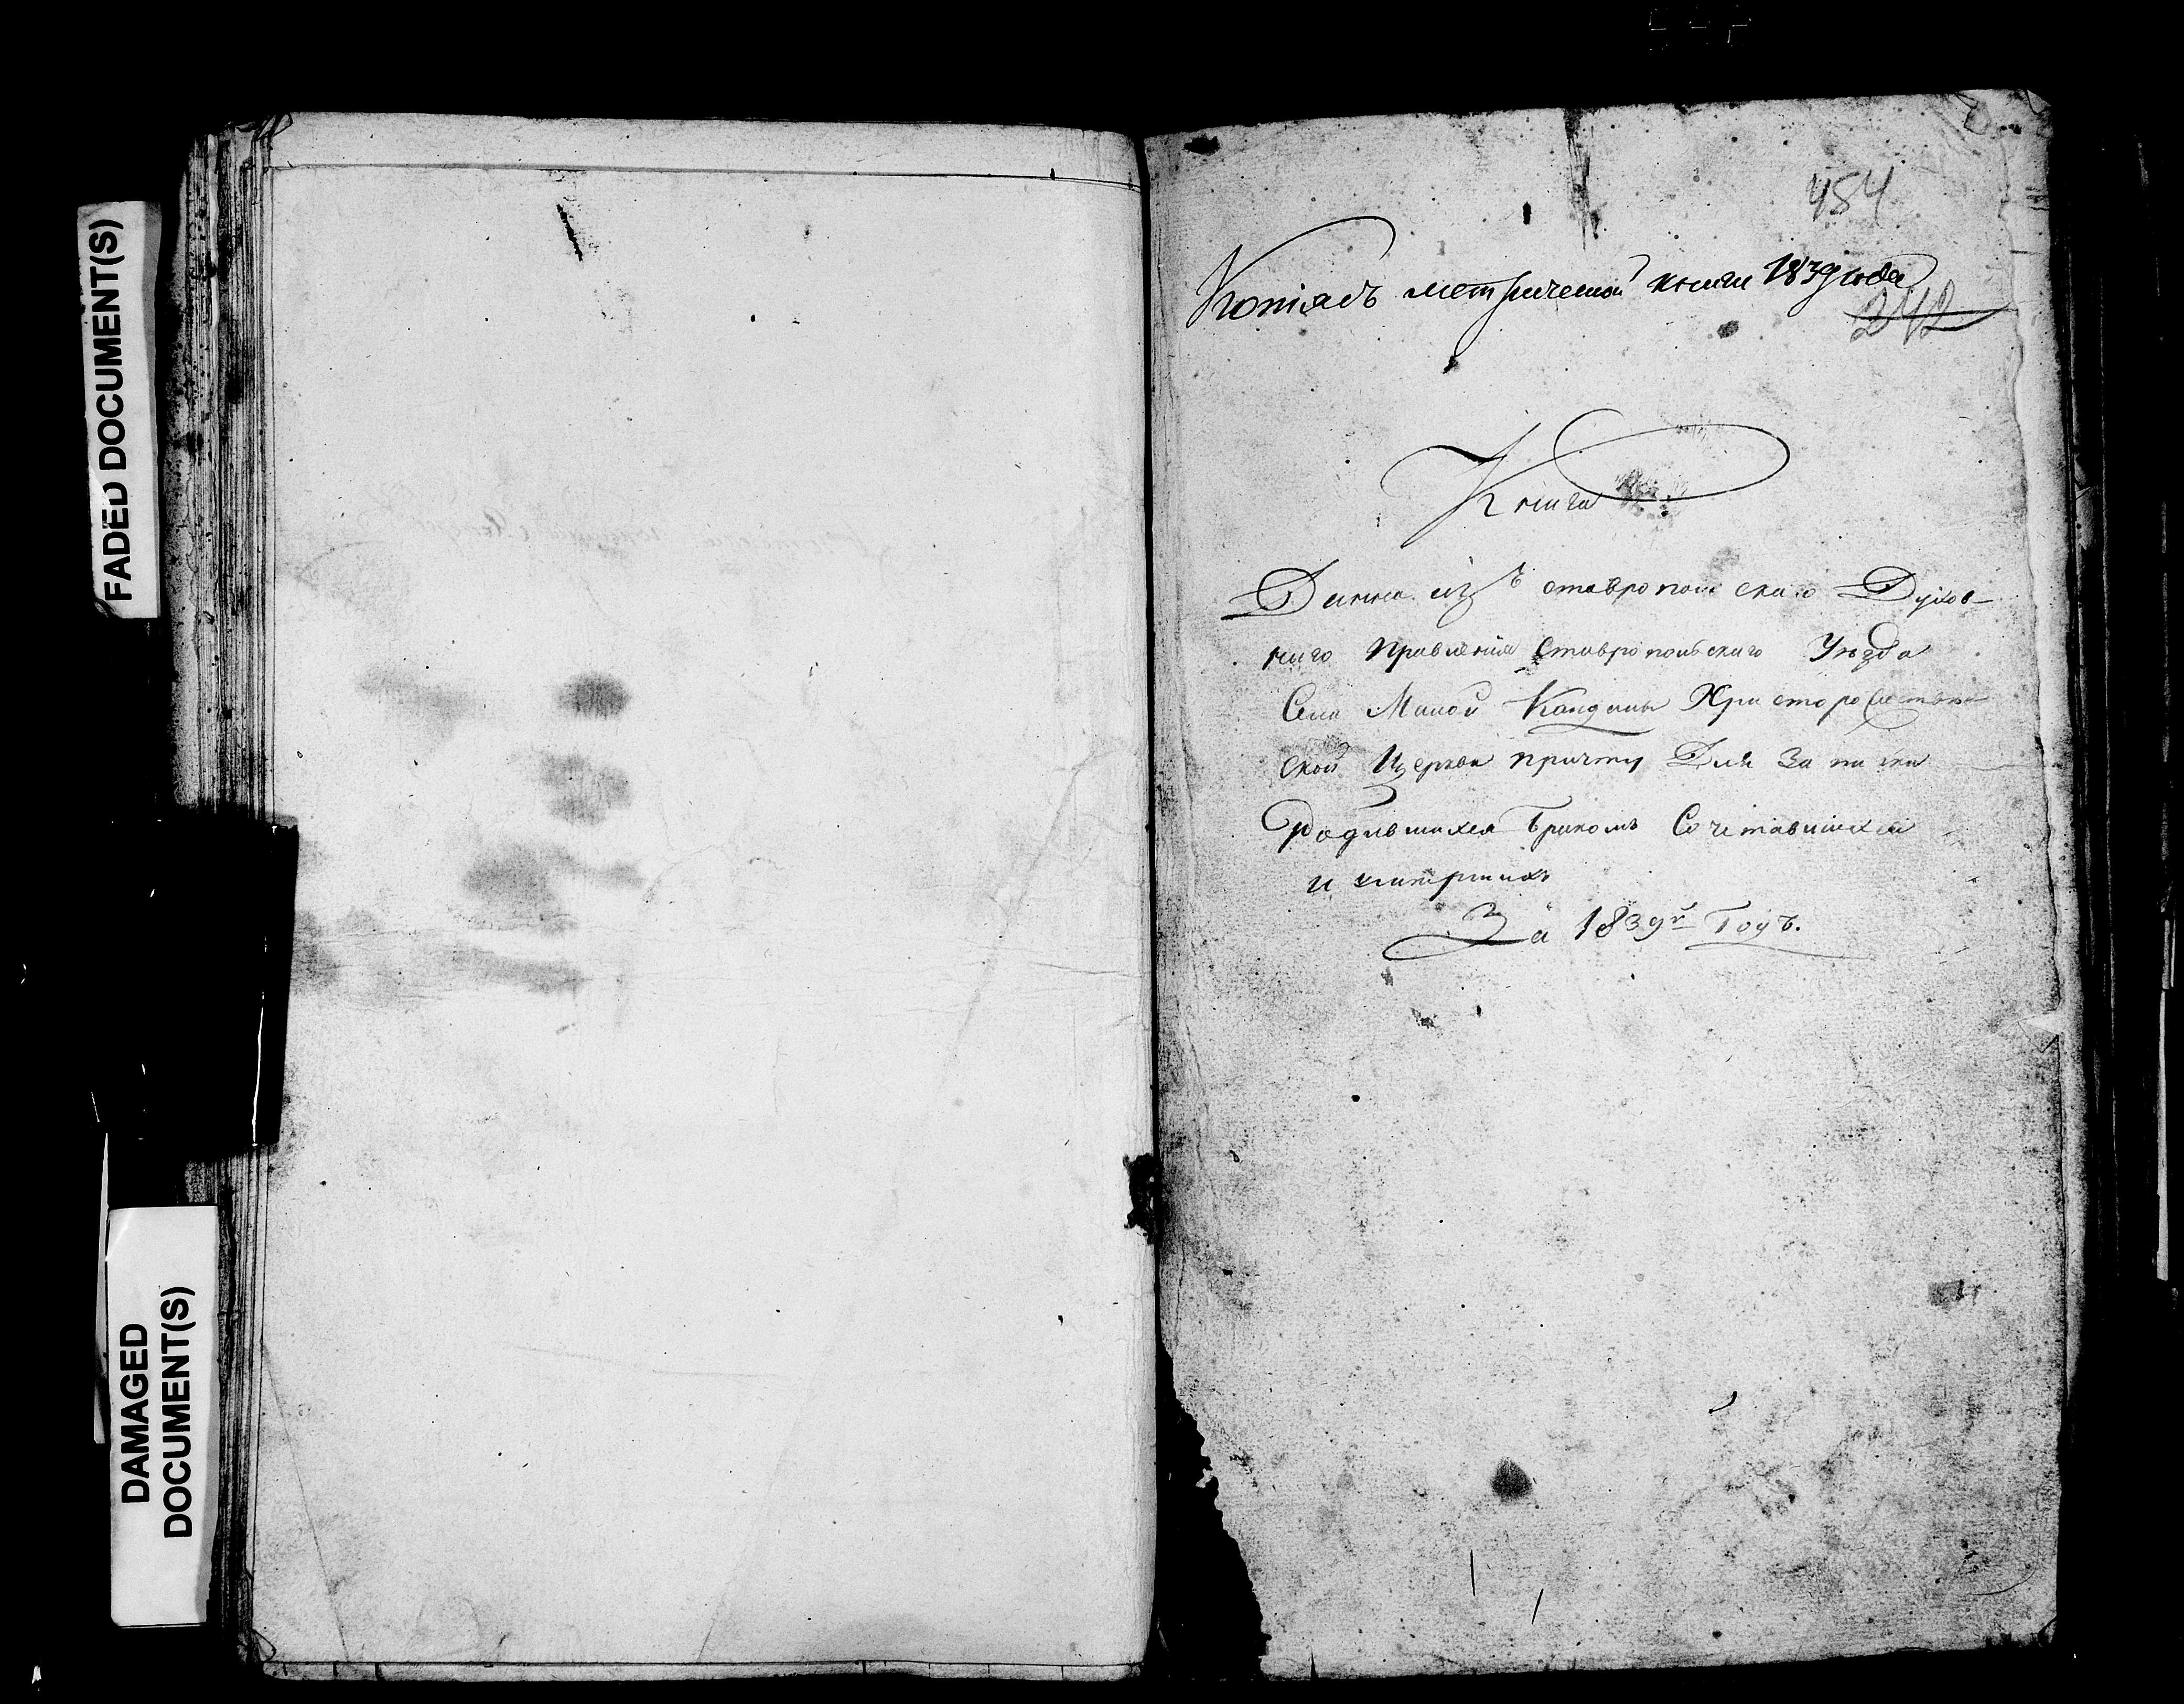 FADED DOCUMENT(S)
DAMAGED
DOCUMENT(S)
454
Копія съ метрической книги 1839 года
242
Книга
Данна изъ ставропольскаго Духов-
наго Правленія Ставропольскаго Уѣзда
Села Малой Кандалы Христорождествен-
ской Церкви причту Для Записки
Родившихся бракомъ Сочетавшихся
и умершихъ
За 1839й Годъ.